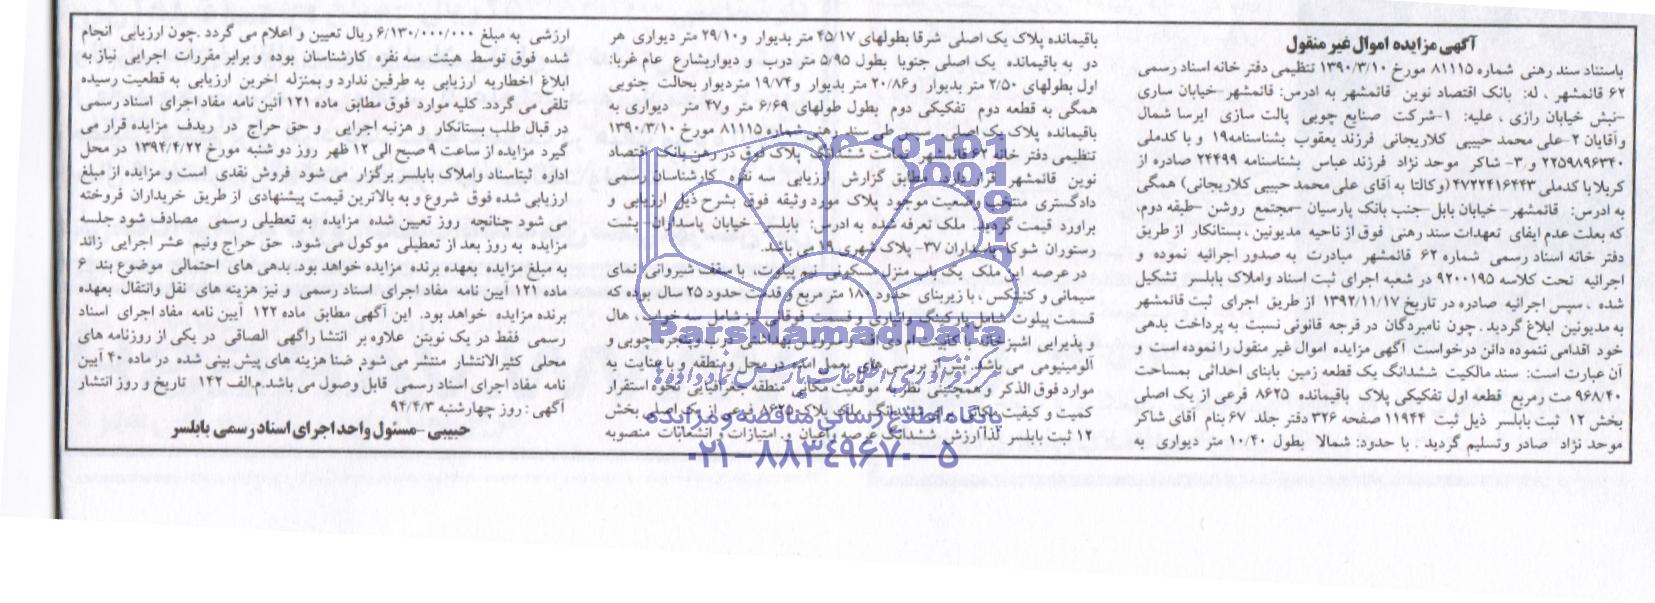 آگهی مزایده اموال غیر منقول
باستناد سند رهنی شماره ۸۱۱۱۵ مورخ ۱۳۹۰/۳/۱۰ تنظیمی دفتر خانه اسناد رسمی
۶۲ قائمشهر ، له: بانک اقتصاد نوین قائمشهر به ادرس: قائمشهر-خیابان ساری
-نبش خیابان رازی ، علیه: ۱-شرکت صنایع چوبی پالت سازی ایرسا شمال
وآقایان ۲-علی محمد حبیبی کلاریجانی فرزند یعقوب بشناسنامه۱۹ و با کدملی
۲۲۵۹۸۹۶۳۴۰ و۳- شاکر موحد نژاد فرزند عباس بشناسنامه ۲۲۴۹۹ صادره از
کربلا با کدملی ۴۷۲۲۴۱۶۴۴۳ (وکالتا به آقای علی محمد حبیبی کلاریجانی) همگی
به ادرس: قائمشهر- خیابان بابل-جنب بانک پارسیان -مجتمع روشن -طبقه دوم،
که بعلت عدم ایفای تعهدات سند رهنی فوق از ناحیه مدیونین ، بستانکار از طریق
دفتر خانه اسناد رسمی شماره ۶۲ قائمشهر مبادرت به صدور اجرائیه نموده و
اجرائیه تحت کلاسه ۹۲۰۰۱۹۵ در شعبه اجرای ثبت اسناد واملاک بابلسر تشکیل
شده ، سپس اجرائیه صادره در تاریخ ۱۳۹۲/۱۱/۱۷ از طریق اجرای ثبت قائمشهر
به مدیونین ابلاغ گردید . چون نامبردگان در فرجه قانونی نسبت به پرداخت بدهی
خود اقدامی ننموده دائن درخواست آگهی مزایده اموال غیر منقول را نموده است و
آن عبارت است: سند مالکیت ششدانگ یک قطعه زمین بابنای احداثی بمساحت
۹۶۸/۴۰ مت رمربع قطعه اول تفکیکی پلاک باقیمانده ۸۶۲۵ فرعی از یک اصلی
بخش ۱۲ ثبت بابلسر ذیل ثبت ۱۱۹۴۴ صفحه ۳۲۶ دفتر جلد ۶۷ بنام آقای شاکر
موحد نژاد صادر وتسلیم گردید : با حدود: شمالا بطول ۱۰/۴۰ متر دیواری به
باقیمانده پلاک یک اصلی شرقا بطولهای ۴۵/۱۷ متر بدیوار و۲۹/۱۰ متر دیواری هر
دو به باقیمانده یک اصلی جنوبا بطول ۵/۹۵ متر درب و دیواربشارع عام غربا:
اول بطولهای ۲/۵۰ متر بدیوار و۲۰/۸۶ متر بدیوار و۱۹/۷۴ متردیوار بحالت جنوبی
همگی به قطعه دوم تفکیکی دوم بطول طولهای ۶/۶۹ متر و۴۷ متر دیواری به
باقیمانده پلاک یک اصلی طی سند رهنی شماره ۸۱۱۱۵ مورخ ۱۳۹۰/۳/۱۰
تنظیمی دفتر خانه ۶۲ قائمشهر تمامت ششدانگ پلاک فوق در رهن بانک اقتصاد
نوین قائمشهر قرار دارد. مطابق گزارش ارزیابی سه نفره کارشناسان رسمی
دادگستری منتخب وضعیت موجود پلاک مورد وثیقه فوق بشرح ذیل ارزیابی و
براورد قیمت گردید. ملک تعرفه شده به ادرس: بابلسر- خیابان پاسداران- پشت
رستوران شوکا پاسداران ۳۷- پلاک شهری ۱۹ می باشد.
در عرصه این ملک یک باب منزل مسکونی نیم پیلوت، با سقف شیروانی نمای
سیمانی و کنیتکس ، با زیربنای حدود ۱۸۰ متر مربع و قدمت حدود ۲۵ سال بوده که
قسمت پیلوت شامل پارکینگ و انباری و قسمت فوقانی نیز شامل سه خواب ، هال
و پذیرایی اشپزخانه با کابینت چوبی و
آلومینیومی می باشد. پس از بررسی های بعمل امده در محل و منطقه و با عنایت به
موارد فوق الذکر و همچنین موقعیت مکانی منطقه جغرافیایی نحوه استقرار
کمیت و کیفیت پلاک ۸۶۲۵ فرعی از یک اصلی بخش
۱۲ ثبت بابلسر لذا ارزش ششدانگ عرصه واعیان و امتیازات و انشعابات منصوبه
ارزشی به مبلغ ۶/۱۳۰/۰۰۰/۰۰۰ ریال تعیین و اعلام می گردد .چون ارزیابی انجام
شده فوق توسط هیئت سه نفره کارشناسان بوده و برابر مقررات اجرایی نیاز به
ابلاغ اخطاریه ارزیابی به طرفین ندارد و بمنزله اخرین ارزیابی به قطعیت رسیده
تلقی می گردد. کلیه موارد فوق مطابق ماده ۱۲۱ آئین نامه مفاد اجرای اسناد رسمی
در قبال طلب بستانکار و هزنیه اجرایی و حق حراج در ریدف مزایده قرار می
گیرد مزایده از ساعت ۹ صبح الی ۱۲ ظهر روز دو شنبه مورخ ۱۳۹۴/۴/۲۲ در محل
اداره ثبتاسناد واملاک بابلسر برگزار می شود فروش نقدی است و مزایده از مبلغ
ارزیابی شده فوق شروع و به بالاترین قیمت پیشنهادی از طریق خریداران فروخته
می شود چنانچه روز تعیین شده مزایده به تعطیلی رسمی مصادف شود جلسه
مزایده به روز بعد از تعطیلی موکول می شود. حق حراج ونیم عشر اجرایی زائد
به مبلغ مزایده بعهده برنده مزایده خواهد بود. بدهی های احتمالی موضوع بند ۶
ماده ۱۲۱ آیین نامه مفاد اجرای اسناد رسمی و نیز هزینه های نقل وانتقال بعهده
برنده مزایده خواهد بود. این آگهی مطابق ماده ۱۲۲ آیین نامه مفاد اجرای اسناد
رسمی فقط در یک نوبتن علاوه بر انتشا راگهی الصاقی در یکی از روزنامه های
محلی کثیرالانتشار منتشر می شود. ضمنا هزینه های پیش بینی شده در ماده ۴۰ آیین
نامه مفاد اجرای اسناد رسمی قابل وصول می باشد.م.الف ۱۴۲ تاریخ و روز انتشار
آگهی : روز چهارشنبه ۹۴/۴/۳
حبیبی- مسئول واحد اجرای اسناد رسمی بابلسر
ParsNamadData
مرکز فرآوری اطلاعات پارس نماد داده ها
پایگاه اطلاع رسانی مناقصه و مزایده
۰۲۱-۸۸۳۴۹۶۷۰-۵